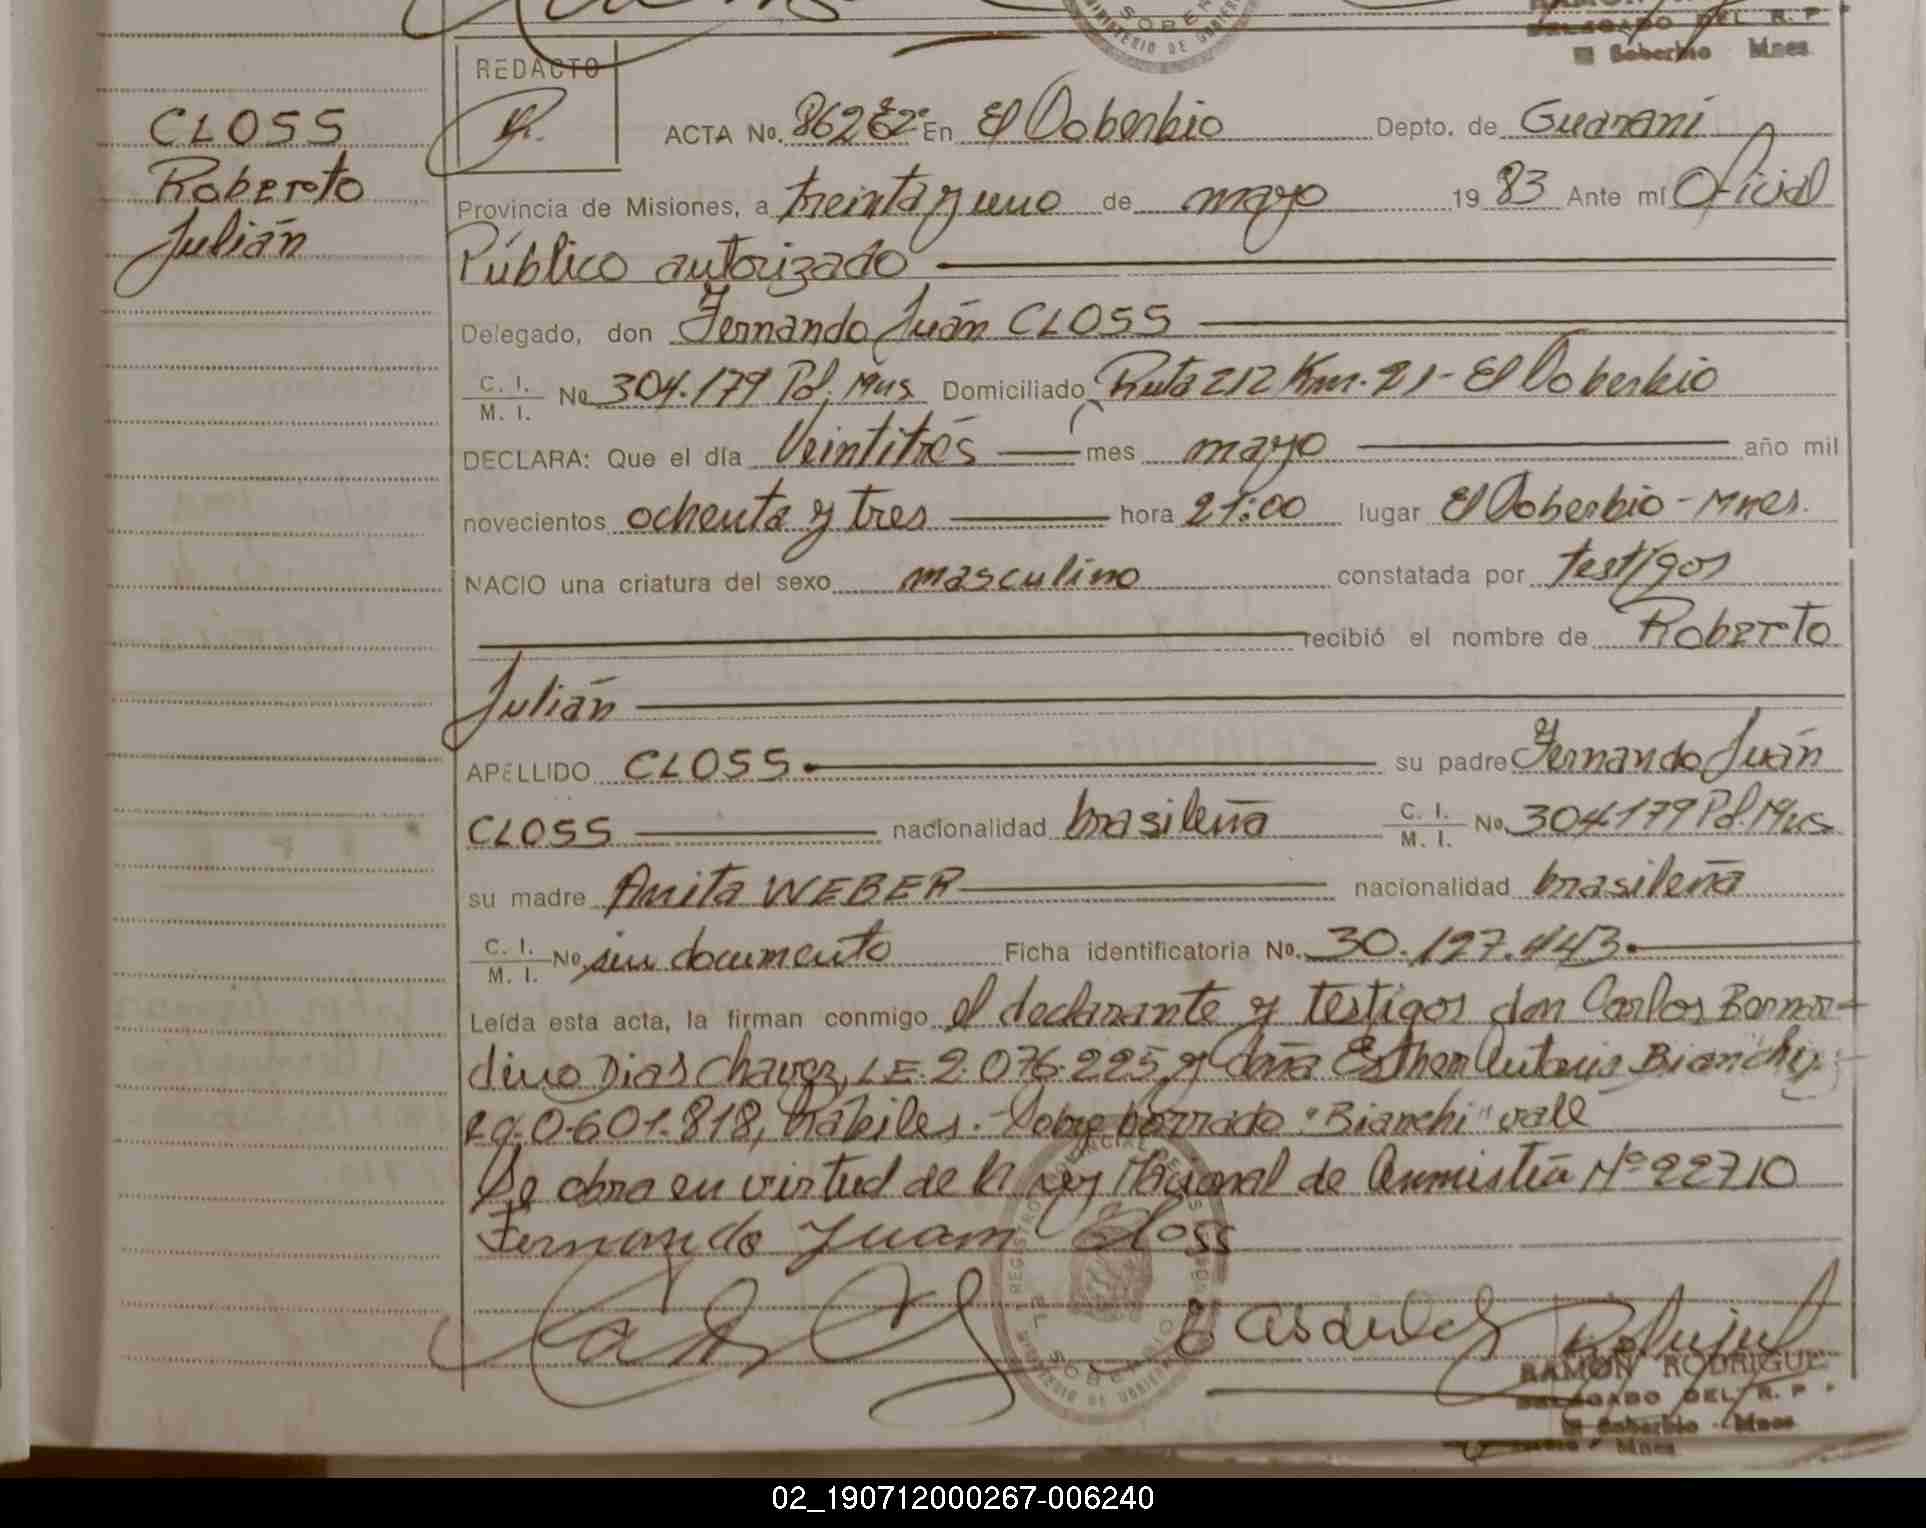 SOBER
MINISTERIO DE GOBIER
DELEGADO DEL R. P.
El Soberbio Mnes
REDACTO
CLOSS
Roberto
Julián
ACTA No. En El Soberbio Depto. de Guaraní
Provincia de Misiones, a treinta y uno de mayo 19 83 Ante mí Oficial
Público autorizado
Delegado, don Fernando Juán CLOSS
C. I. M. I. No 304.179 Pol. Mns Domiciliado Ruta 212 Km. 21 - El Soberbio
DECLARA: Que el día Veintitrés mes mayo año mil
novecientos ochenta y tres hora 21:00 lugar El Soberbio - Mnes.
NACIO una criatura del sexo masculino constatada por testigos
recibió el nombre de Roberto
Julián
APELLIDO CLOSS su padre Fernando Juán
CLOSS nacionalidad brasileña C. I. M. I. No. 304179 Pol. Mns
su madre Anita WEBER nacionalidad brasileña
C. I. M. I. No. sin documento Ficha identificatoria No. 30.127.443.
Leída esta acta, la firman conmigo el declarante y testigos don Carlos Bernar-
dino Dias Chavez, LE. 2.076.225 y doña Esther Antonia Bianchi,
0.601.818, hábiles. - Sobre borrado "Bianchi" vale
Se obra en virtud de la Ley Nacional de Anmistía Nº 22710
Fernando Juam Closs
REGISTRO PROVINCIAL DE LAS PERSONAS
EL SOBERBIO
MINISTERIO DE GOBIERNO
RAMON RODRIGUE
DELEGADO DEL R. P.
El Soberbio - Mnes
Mnes
02_190712000267-006240